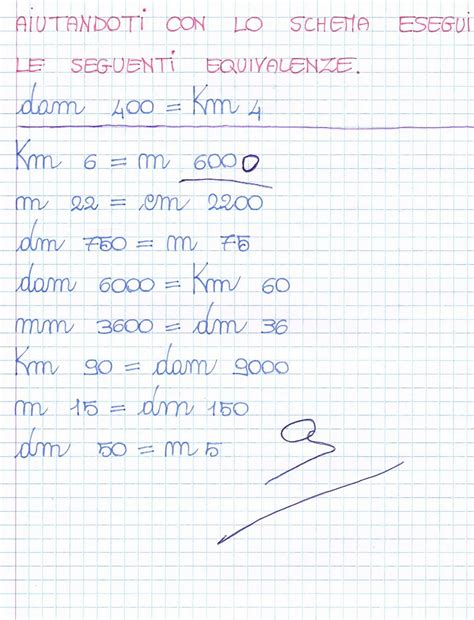 AIUTANDOTI CON LO SCHEMA ESEGUI
LE SEGUENTI EQUIVALENZE.
dam 400 = Km 4
Km 6 = m 6000
m 22 = cm 2200
dm 750 = m 75
dam 6000 = Km 60
mm 3600 = dm 36
Km 90 = dam 9000
m 15 = dm 150
dm 50 = m 5